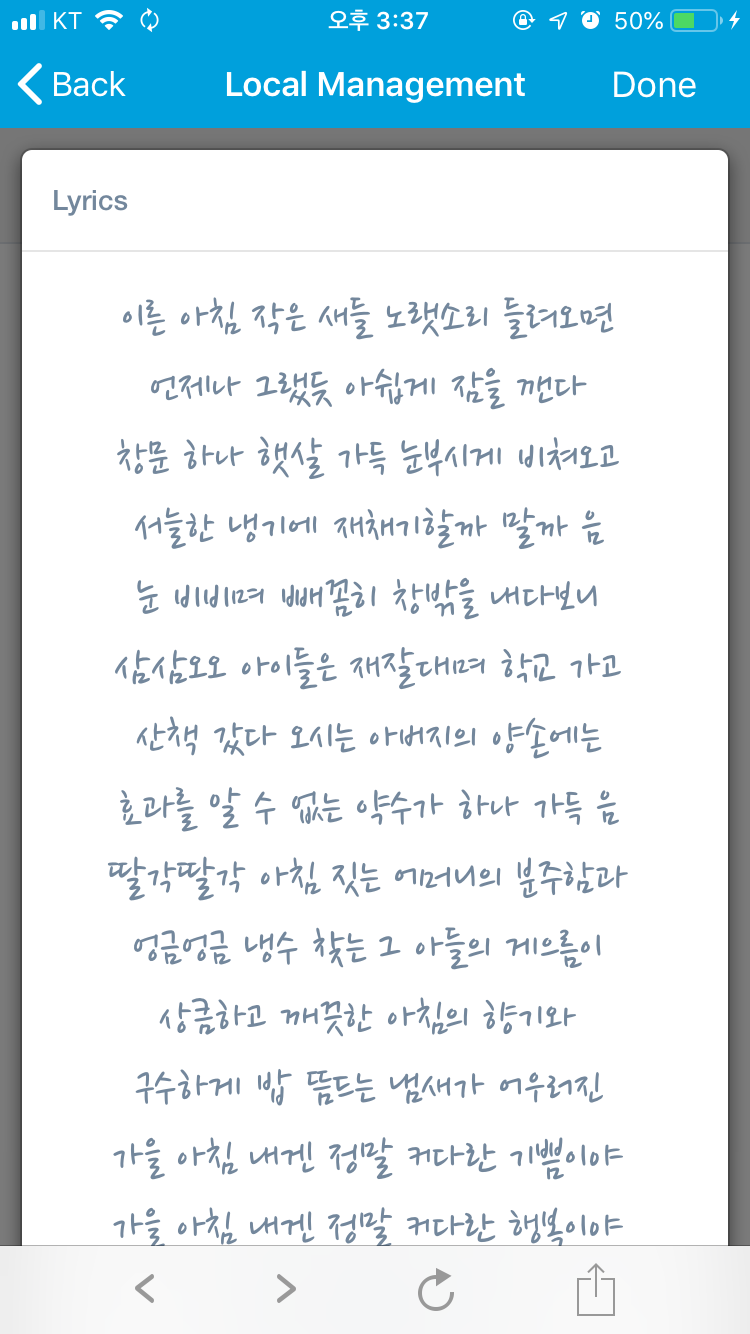 KT 오후 3:37 50%
Back Local Management Done
Lyrics
이른 아침 작은 새들 노랫소리 들려오면
언제나 그랬듯 아쉽게 잠을 깬다
창문 하나 햇살 가득 눈부시게 비쳐오고
서늘한 냉기에 재채기할까 말까 음
눈 비비며 빼꼼히 창밖을 내다보니
삼삼오오 아이들은 재잘대며 학교 가고
산책 갔다 오시는 아버지의 양손에는
효과를 알 수 없는 약수가 하나 가득 음
딸각딸각 아침 짓는 어머니의 분주함과
엉금엉금 냉수 찾는 그 아들의 게으름이
상큼하고 깨끗한 아침의 향기와
구수하게 밥 뜸드는 냄새가 어우러진
가을 아침 내겐 정말 커다란 기쁨이야
가을 아침 내겐 정말 커다란 행복이야